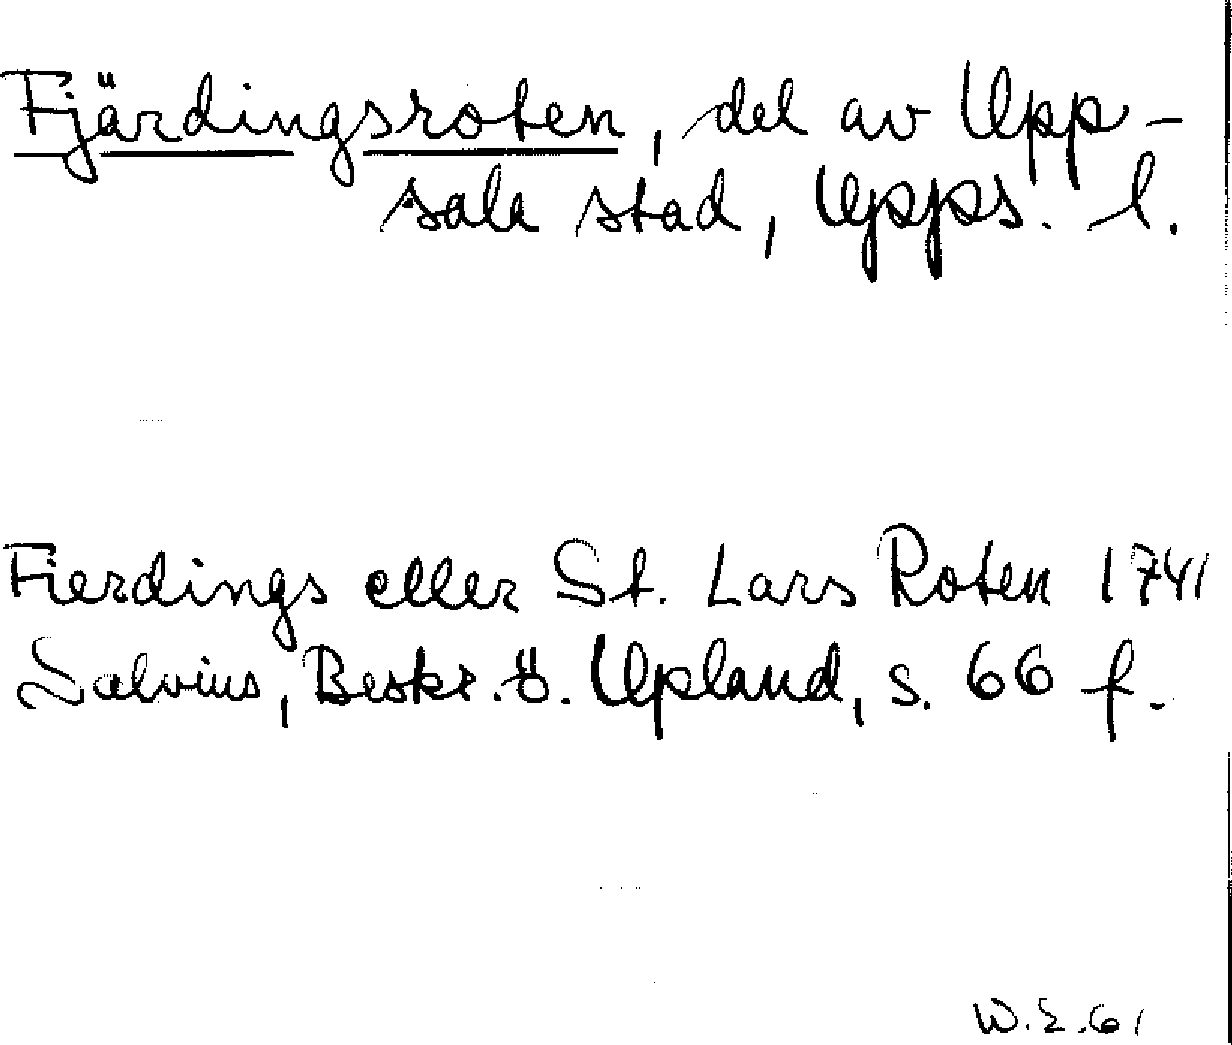 Fjärdingsroten, del av Upp-
sala stad, Upps. l.
Fierdings eller St. Lars Roten 1741
Salvius, Beskr. ö. Upland, s. 66 f.
W.E.61